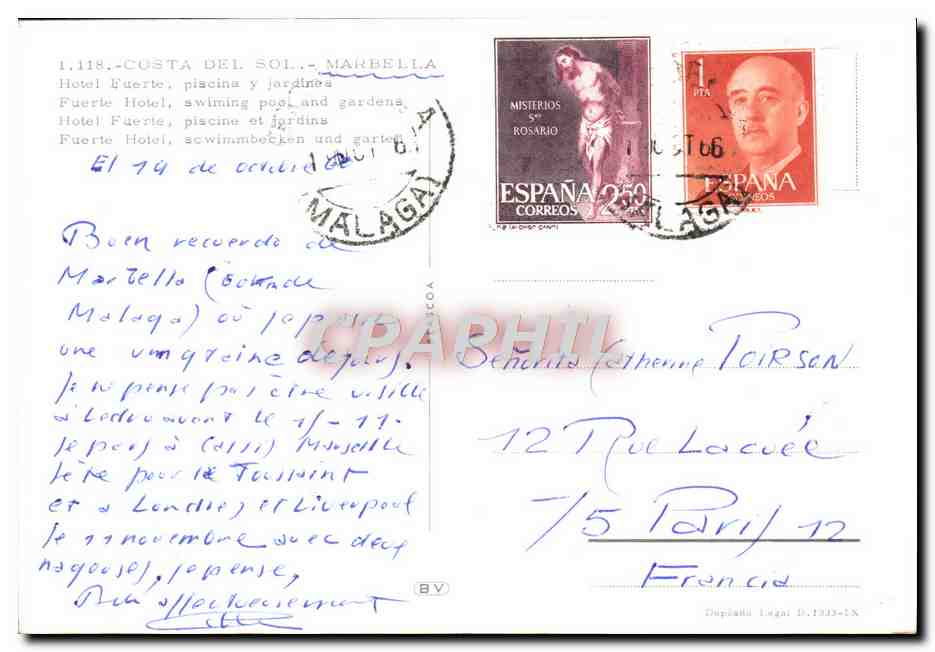 1.118.-COSTA DEL SOL.- MARBELLA
Hotel Fuerte, piscina y jardines
Fuerte Hotel, swiming pool and gardens
Hotel Fuerte, piscine et jardins
Fuerte Hotel, scwimmbecken und garten
El 14 de octubre
Buen recuerdo de
Marbella (
Malaga) où je passe
une quinzaine de jours.
Je ne pense pas être visible
à avant le 15-11-
Je pars à Cassis Marseille
fête pour la Toussaint
et à Londres et Liverpool
le 11 novembre avec deux
je pense,
Bien affectueusement
MALAGA
MISTERIOS
Sto
ROSARIO
ESPAÑA 2,50
CORREOS PTAS
1
PTA
ESPAÑA
CORREOS
OCT 66
MALAGA
CPAPHIL
Señorita Catherine POIRSON
12 Rue Lacuée
75 Paris 12
Francia
BV
Depósito Legal B.1333-IX